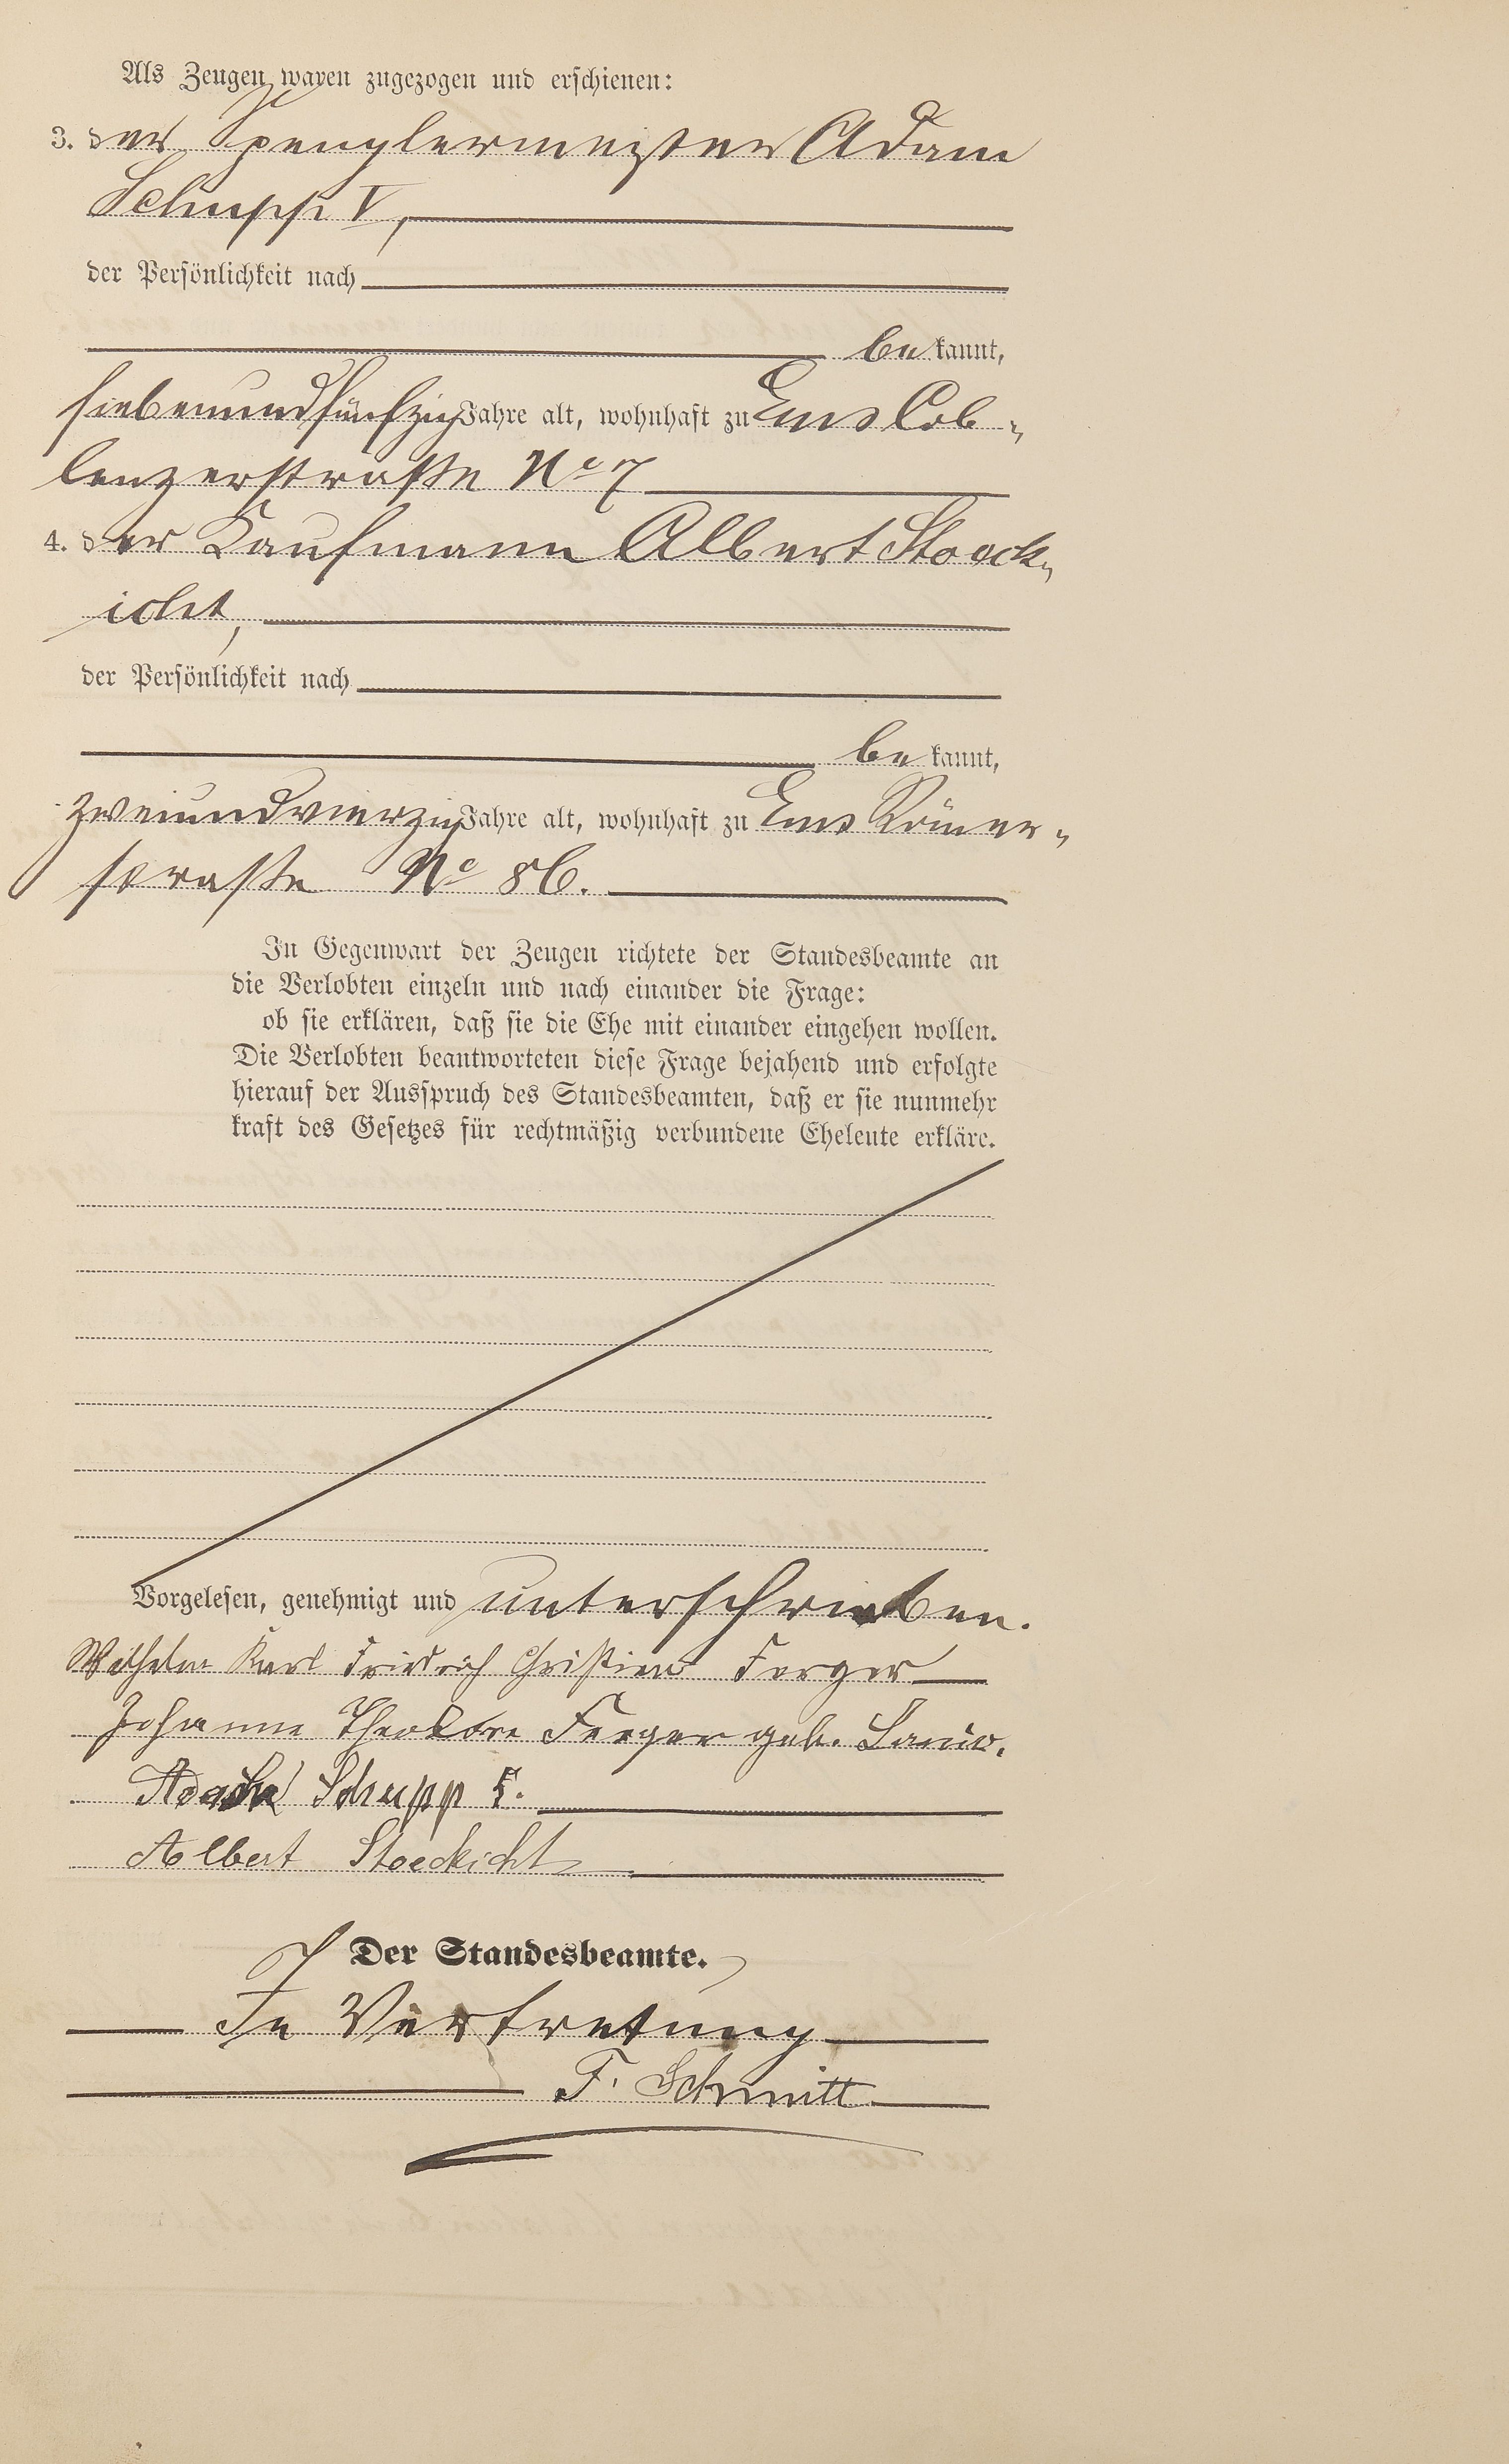 Als Zeugen waren zugezogen und erschienen:
3. der Spenglermeister Adam
Schupp V,
der Persönlichkeit nach
be kannt,
siebenundfünfzig Jahre alt, wohnhaft zu Ems Cob-
lenzerstraße No 7
4. der Kaufmann Albert Stoeck-
icht,
der Persönlichkeit nach
be kannt,
zweiundvierzig Jahre alt, wohnhaft zu Ems Römer-
straße No 86.
In Gegenwart der Zeugen richtete der Standesbeamte an
die Verlobten einzeln und nach einander die Frage:
ob sie erklären, daß sie die Ehe mit einander eingehen wollen.
Die Verlobten beantworteten diese Frage bejahend und erfolgte
hierauf der Ausspruch des Standesbeamten, daß er sie nunmehr
kraft des Gesetzes für rechtmäßig verbundene Eheleute erkläre.
Vorgelesen, genehmigt und unterschrieben.
Wilhelm Karl Friedrich Christian Ferger
Johanne Theodore Ferger geb.
Adam Schupp 5.
Albert Stoeckicht
Der Standesbeamte.
In Vertretung
F. Schmitt